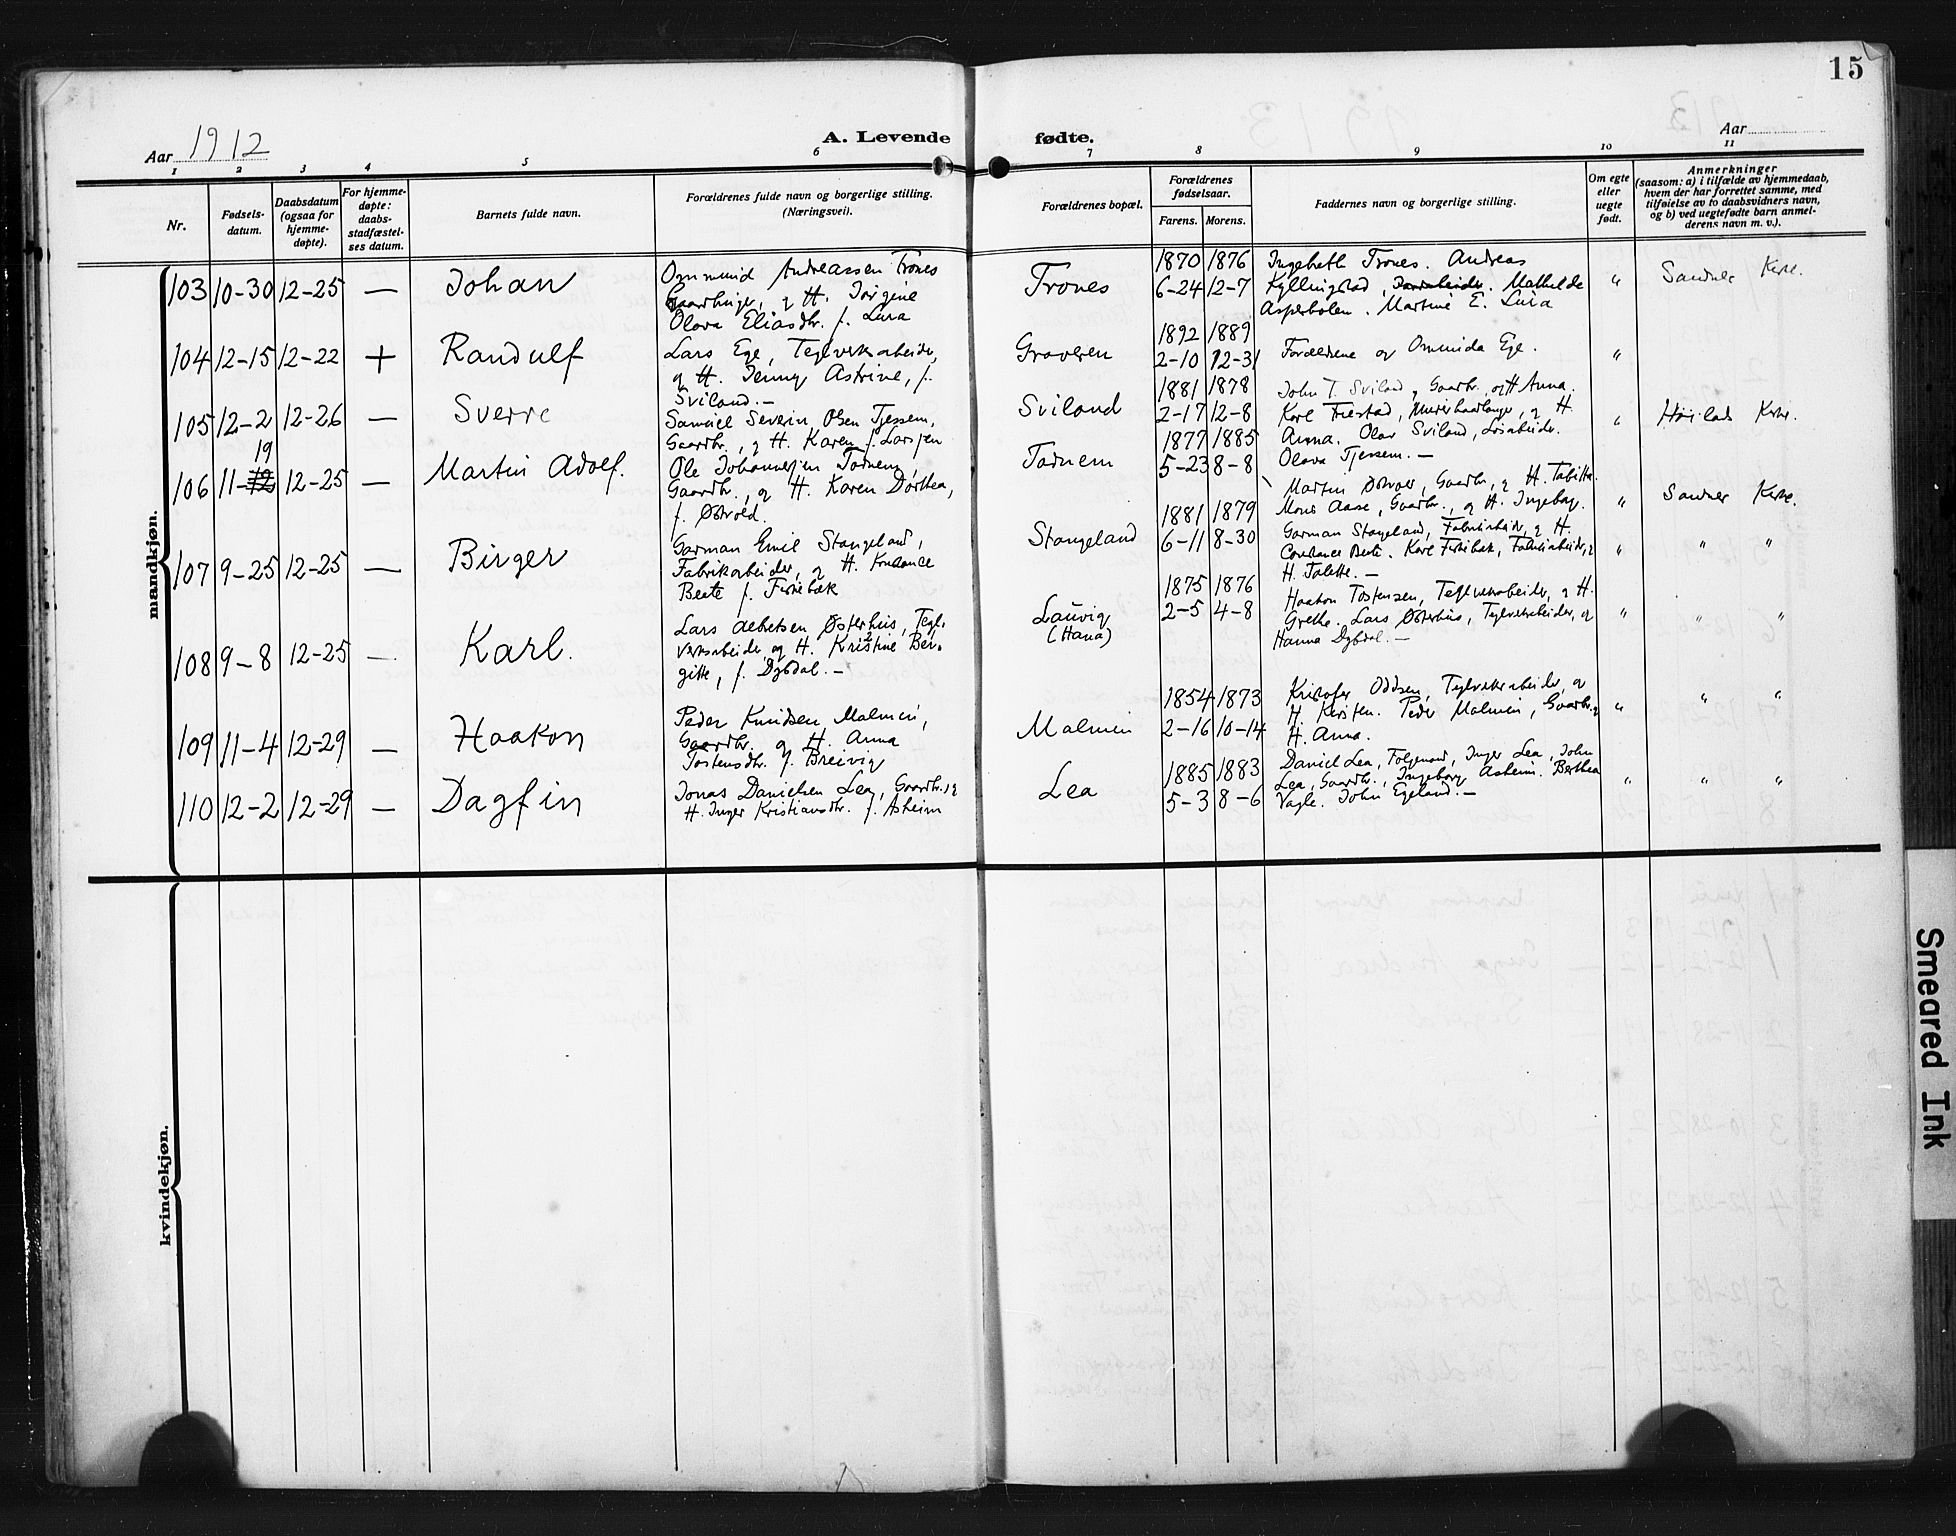 15
Aar 1912
A. Levende fødte.
Aar
1 2 3 4 5 6 7 8 9 10 11
Nr.
Fødsels-
datum.
Daabsdatum
(ogsaa for
hjemme-
døpte).
For hjemme-
døpte:
daabs-
stadfæstel-
ses datum.
Barnets fulde navn.
Forældrenes fulde navn og borgerlige stilling.
(Næringsvei).
Forældrenes bopæl.
Forældrenes
fødselsaar.
Farens. Morens.
Faddernes navn og borgerlige stilling.
Om egte
eller
uegte
født.
Anmerkninger
(saasom: a) i tilfælde av hjemmedaab,
hvem der har forrettet samme, med
tilføielse av to daabsvidners navn,
og b) ved uegtefødte barn anmel-
derens navn m. v.).
mandkjøn.
103 10-30 12-25 — Johan
Ommund Andreassen Trones
Gaardbruger, og H. Jørgine
Olava Eliasdtr. f. Lura
Trones
1870 1876
6-24 12-7
Ingebreth Trones. Andreas
Kyllingstad, . Mathilde
Aspervolen. Martine E. Lura
" Sandnes Kirke.
104 12-15 12-22 + Randulf
Lars Ege, Teglverksarbeider,
og H. Jenny Astrine, f.
Sviland. —
Graveren
1892 1889
2-10 12-31
Forældrene og Ommunda Ege.
"
105 12-2 12-26 — Sverre
Samuel Severin Olsen Tjessem,
Gaardbr., og H. Karen f. Larsen
Sviland
1881 1878
2-17 12-8
John T. Sviland, Gaardbr., og H Anna.
Karl Frestad, Murerhaandlanger, og H.
Anna. Olav Sviland, Løsarbeider.
Olava Tjessem. —
" Høiland Kirke.
106 11-12 19 12-25 — Martin Adolf.
Ole Johannesen Tadnem,
Gaardbr., og H. Karen Dorthea,
f. Østvold.
Tadnem
1877 1885
5-23 8-8
Martin , Gaardbr., og H. Tabitha.
Mons Aase, Gaardbr., og H. Ingeborg.
" Sandnes Kirke.
107 9-25 12-25 — Birger
Garman Emil Stangeland,
Fabrikarbeider, og H. Konstance
Beate f. Fiskebæk
Stangeland
1881 1879
6-11 8-30
Garman Stangeland, Fabrikarbeider, og H.
Constance Beate. Karl Fiskebæk, Fabrikarbeider, og
H. Talette. —
" " "
108 9-8 12-25 — Karl.
Lars Aebretsen Østerhus, Tegl-
verksarbeider, og H. Kristine Ber-
gitte, f. Dybdal. —
Lauvig
(Hana)
1875 1876
2-5 4-8
Haakon Tostensen, Teglverksarbeider, og H.
Grethe. Lars Østerhus, Teglverksarbeider, og
Hanna Dybdal. —
" " "
109 11-4 12-29 — Haakon
Peder Knudsen Malmin,
Gaardbr. og H. Anna
Tostensdtr. f. Breivig
Malmin
1854 1873
2-16 10-14
Kristofer Oddsen, Teglverksarbeider, og
H. Kirsten. Peder Malmin, Gaardbr. og
H. Anna.
" " "
110 12-2 12-29 — Dagfin
Jonas Danielsen Lea, Gaardbr., og
H. Inger Kristiansdtr. f. Asheim
Lea
1885 1883
5-3 8-6
Daniel Lea, Folgemand, Inger Lea, John
Lea, Gaardbr., Ingeborg Asheim. Berthea
Vagle. John Egeland. —
" " "
kvindekjøn.
Smeared Ink